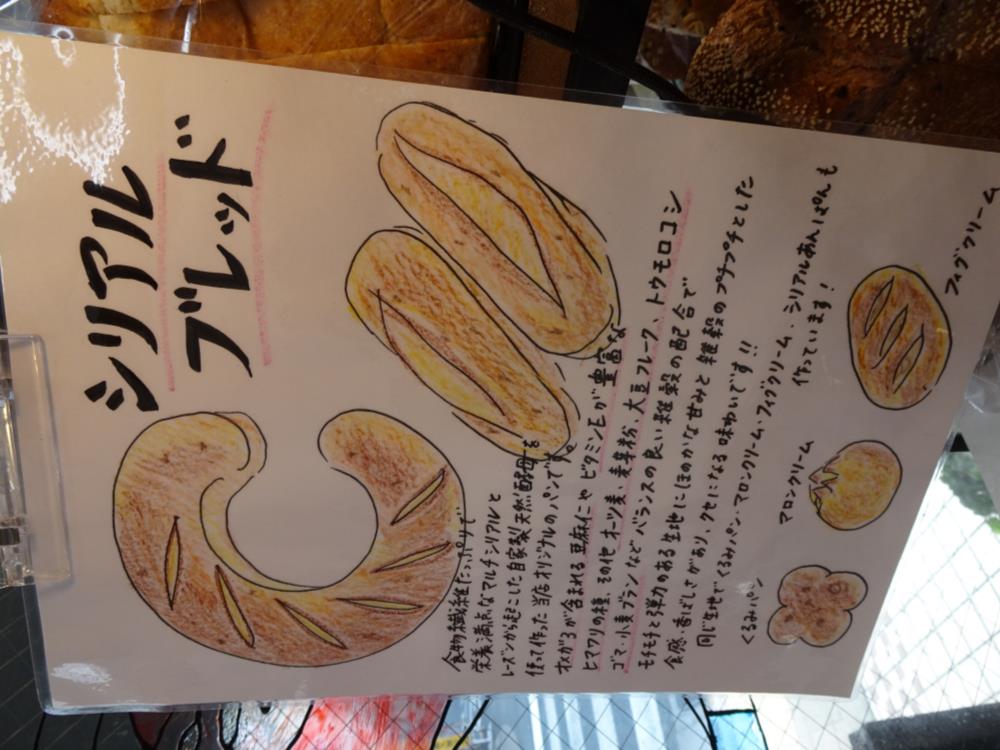 シリアル
ブレッド
食物繊維たっぷりで
栄養満点なマルチシリアルと
レーズンから起こした自家製天然酵母を
使って作った当店オリジナルのパンです。
オメガ3が含まれる亜麻仁や ビタミンEが豊富な
ヒマワリの種、その他 オーツ麦、麦芽粉、大豆フレーク、トウモロコシ
ゴマ、小麦ブランなど バランスの良い雑穀の配合で
モチモチと弾力のある生地にほのかな甘みと雑穀のプチプチとした
食感・香ばしさがあり、クセになる味わいです!!
同じ生地でくるみパン・マロンクリーム・フィグクリーム・シリアルあんぱんも
作っています!
くるみパン
マロンクリーム
フィグクリーム